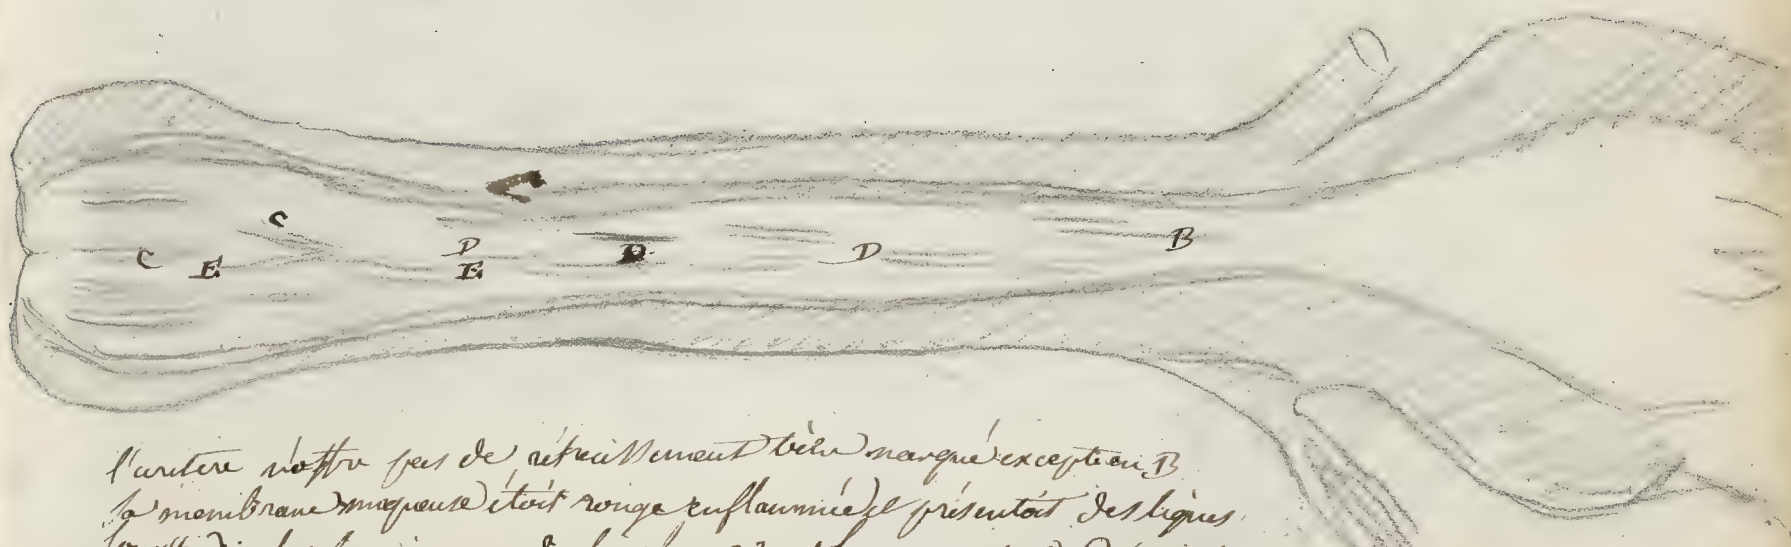 C
C E
D
E
D
D
B
l'uretère n'offre pas de rétrécissement bien marqué excepté en B
la membrane muqueuse étoit rouge enflammée et présentoit des lignes